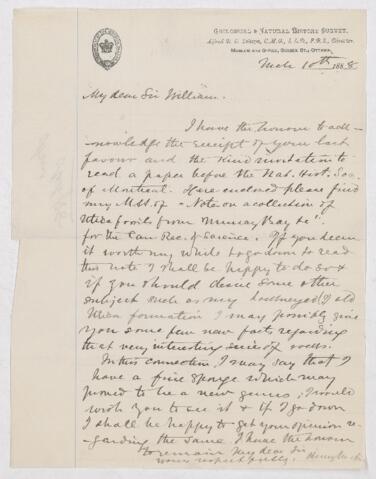 GEOLOGICAL & NATURAL HISTORY SURVEY.
Alfred R. C. Selwyn, C.M.G., L.L.D., F.R.S., Director.
MUSEUM AND OFFICE, SUSSEX ST., OTTAWA,
Mch 10th 1888
My dear Sir William.
I have the honour to ack-
nowledge the receipt of your last
favour and the kind invitation to
read a paper before the Nat. Hist. Soc.
of Montreal. Here enclosed please find
my MS. of "Note on a collection of
Utica fossils from Murray Bay &c"
for the Can. Rec. of Science. If you deem
it worth my while to go down to read
this note I shall be happy to do so &
if you should desire some other
subject such as my
Utica formation I may possibly give
you some few new facts regarding
that very interesting series of rocks.
In this connection, I may say that I
have a fine sponge which may
proved to be a new genus, I would
wish you to see it & if I go down
I shall be happy to get your opinion re-
garding the same. I have the honour
to remain My dear Sir
yours respectfully.